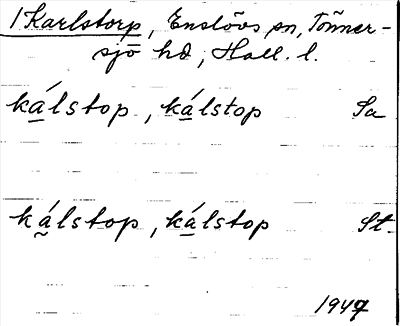 1 Karlstorp, Enslövs sn, Tönner-
sjö hd, Hall. l.
ká̲lstop, ká̲lstop Sa
ká̰lstop, ká̲lstop St.
1947